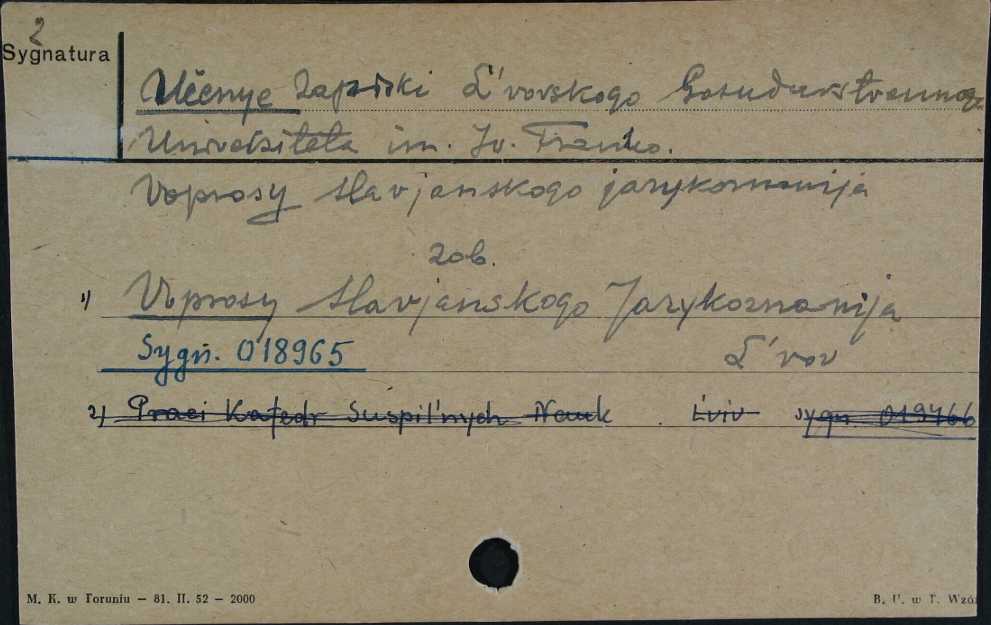 2
Sygnatura
Učenye Zapiski L'vovskogo Gosudarstvennog.
Universiteta im. Iv. Franko.
Voprosy slavjanskogo jazykoznanija
zob.
1) Voprosy slavjanskogo Jazykoznanija
Sygn. 018965 L'vov
2) Praci Katedr Suspil'nych Nauk Lviv sygn 019766
M. K. w Toruniu — 81. II. 52 — 2000
B. U. w T. Wzór